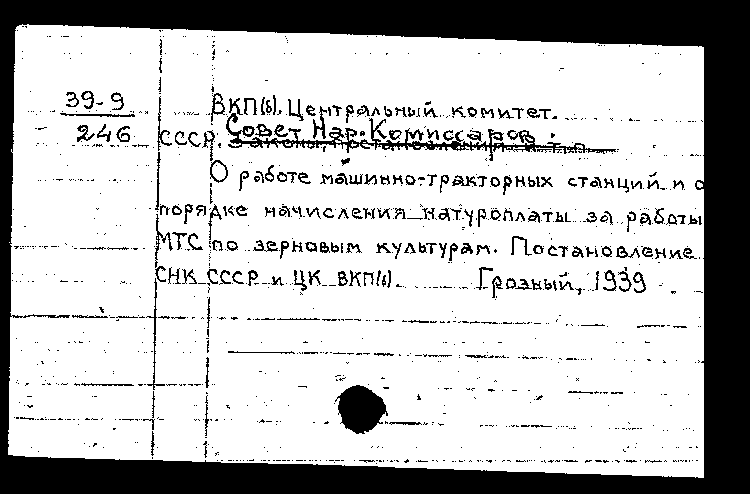 39-9
246
ВКП(б). Центральный комитет.
СССР. Совет Нар. Комиссаров.
Законы, постановления и т.п.
О работе машинно-тракторных станций и о
порядке начисления натуроплаты за работы
МТС по зерновым культурам. Постановление
СНК СССР и ЦК ВКП(б). Грозный, 1939